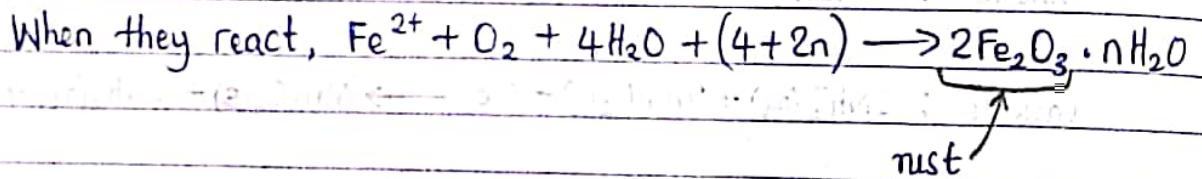 When they react, Fe²⁺ + O₂ + 4H₂O + (4+2n) ⟶ 2Fe₂O₃ · nH₂O
rust